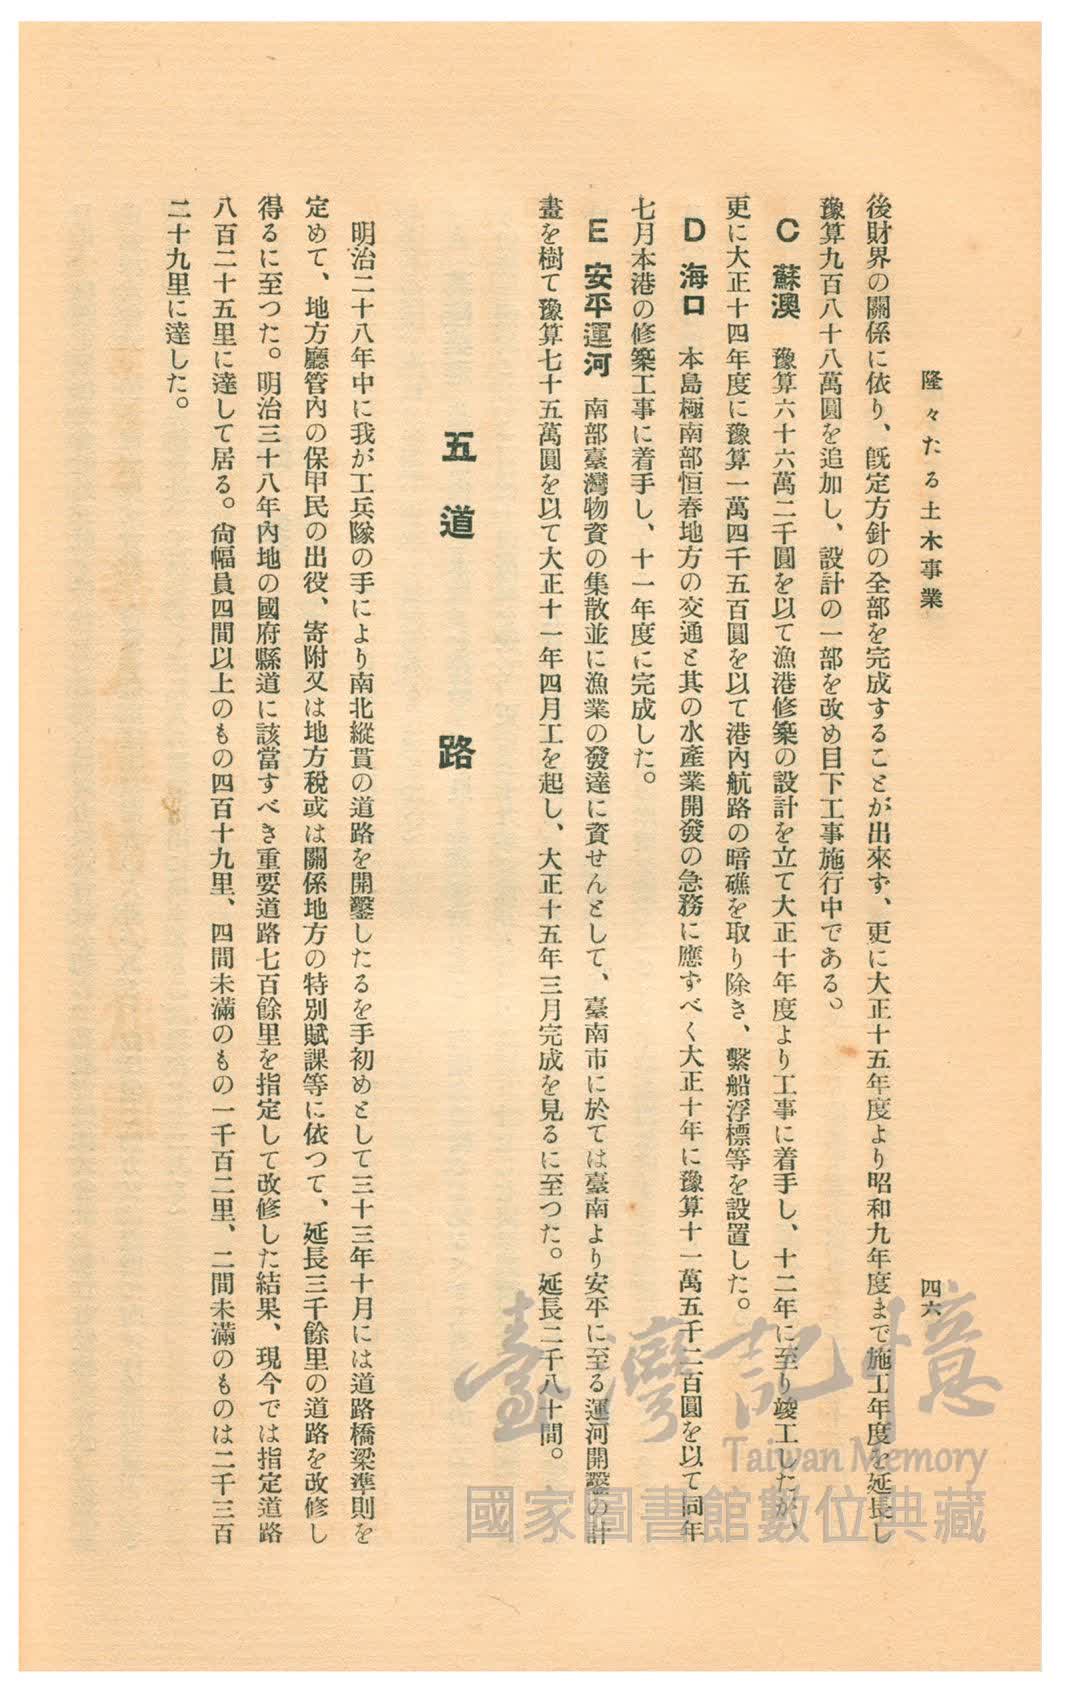 隆々たる土木事業
四六
後財界の關係に依り、既定方針の全部を完成することが出來ず、更に大正十五年度より昭和九年度まで施工年度を延長し
豫算九百八十八萬圓を追加し、設計の一部を改め目下工事施行中である。
C 蘇澳 豫算六十六萬二千圓を以て漁港修築の設計を立て大正十年度より工事に着手し、十二年に至り竣工したが、
更に大正十四年度に豫算一萬四千五百圓を以て港內航路の暗礁を取り除き、繫船浮標等を設置した。
D 海口 本島極南部恒春地方の交通と其の水產業開發の急務に應ずべく大正十年に豫算十一萬五千二百圓を以て同年
七月本港の修築工事に着手し、十一年度に完成した。
E 安平運河 南部臺灣物資の集散並に漁業の發達に資せんとして、臺南市に於ては臺南より安平に至る運河開鑿の計
畫を樹て豫算七十五萬圓を以て大正十一年四月工を起し、大正十五年三月完成を見るに至つた。延長二千八十間。
五 道 路
明治二十八年中に我が工兵隊の手により南北縱貫の道路を開鑿したるを手初めとして三十三年十月には道路橋梁準則を
定めて、地方廳管內の保甲民の出役、寄附又は地方稅或は關係地方の特別賦課等に依つて、延長三千餘里の道路を改修し
得るに至つた。明治三十八年內地の國府縣道に該當すべき重要道路七百餘里を指定して改修した結果、現今では指定道路
八百二十五里に達して居る。尙幅員四間以上のもの四百十九里、四間未滿のもの一千百二里、二間未滿のものは二千三百
二十九里に達した。
臺灣記憶
Taiwan Memory
國家圖書館數位典藏